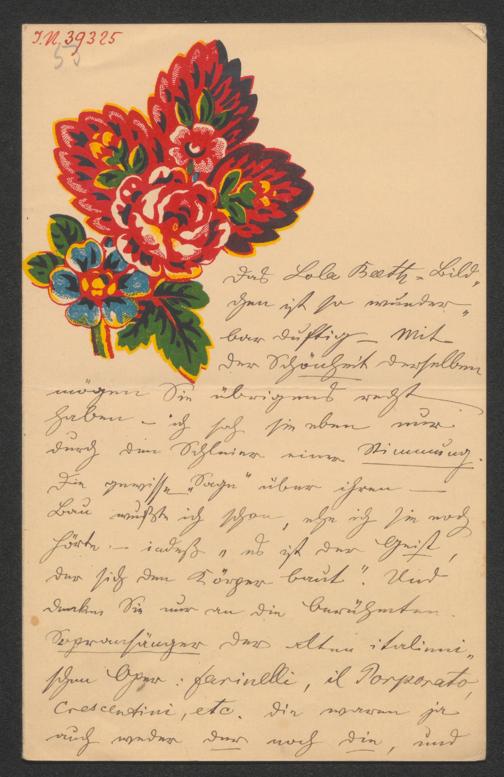 I.N. 39325
53
Das Lola Beeth-Bild„
chen ist so wunder„
bar duftig – Mit
der Schönheit derselben
mögen Sie übrigens recht
haben – ich sah sie eben nur
durch den Schleier einer Stimmung.
Die gewisse „Sage" über ihren –
Bau wußte ich schon, ehe ich sie noch
hörte – indeß „es ist der Geist,
der sich den Körper baut". Und
denken Sie nur an die berühmten
Sopransänger der alten italieni„
schen Oper: Farinelli, il Porporato,
Crescentini, etc. Die waren ja
auch weder der noch die, und